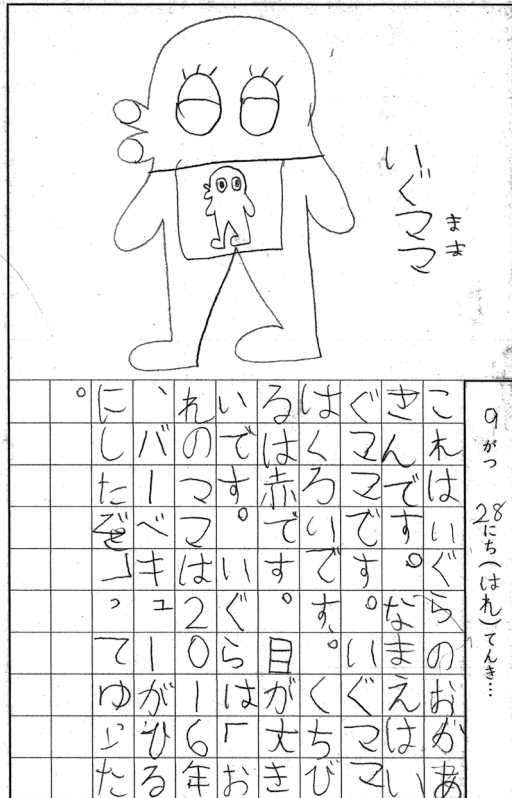 いぐママ
まま
9がつ 28にち(はれ)てんき…
これはいぐらのおかあ
きんです。なまえはい
ぐママです。いぐママ
はくろいです。くちび
るは赤です。目が大き
いです。いぐらは「お
れのママは2016年
、バーベキューがひる
にしたぞ」ってゆった
。